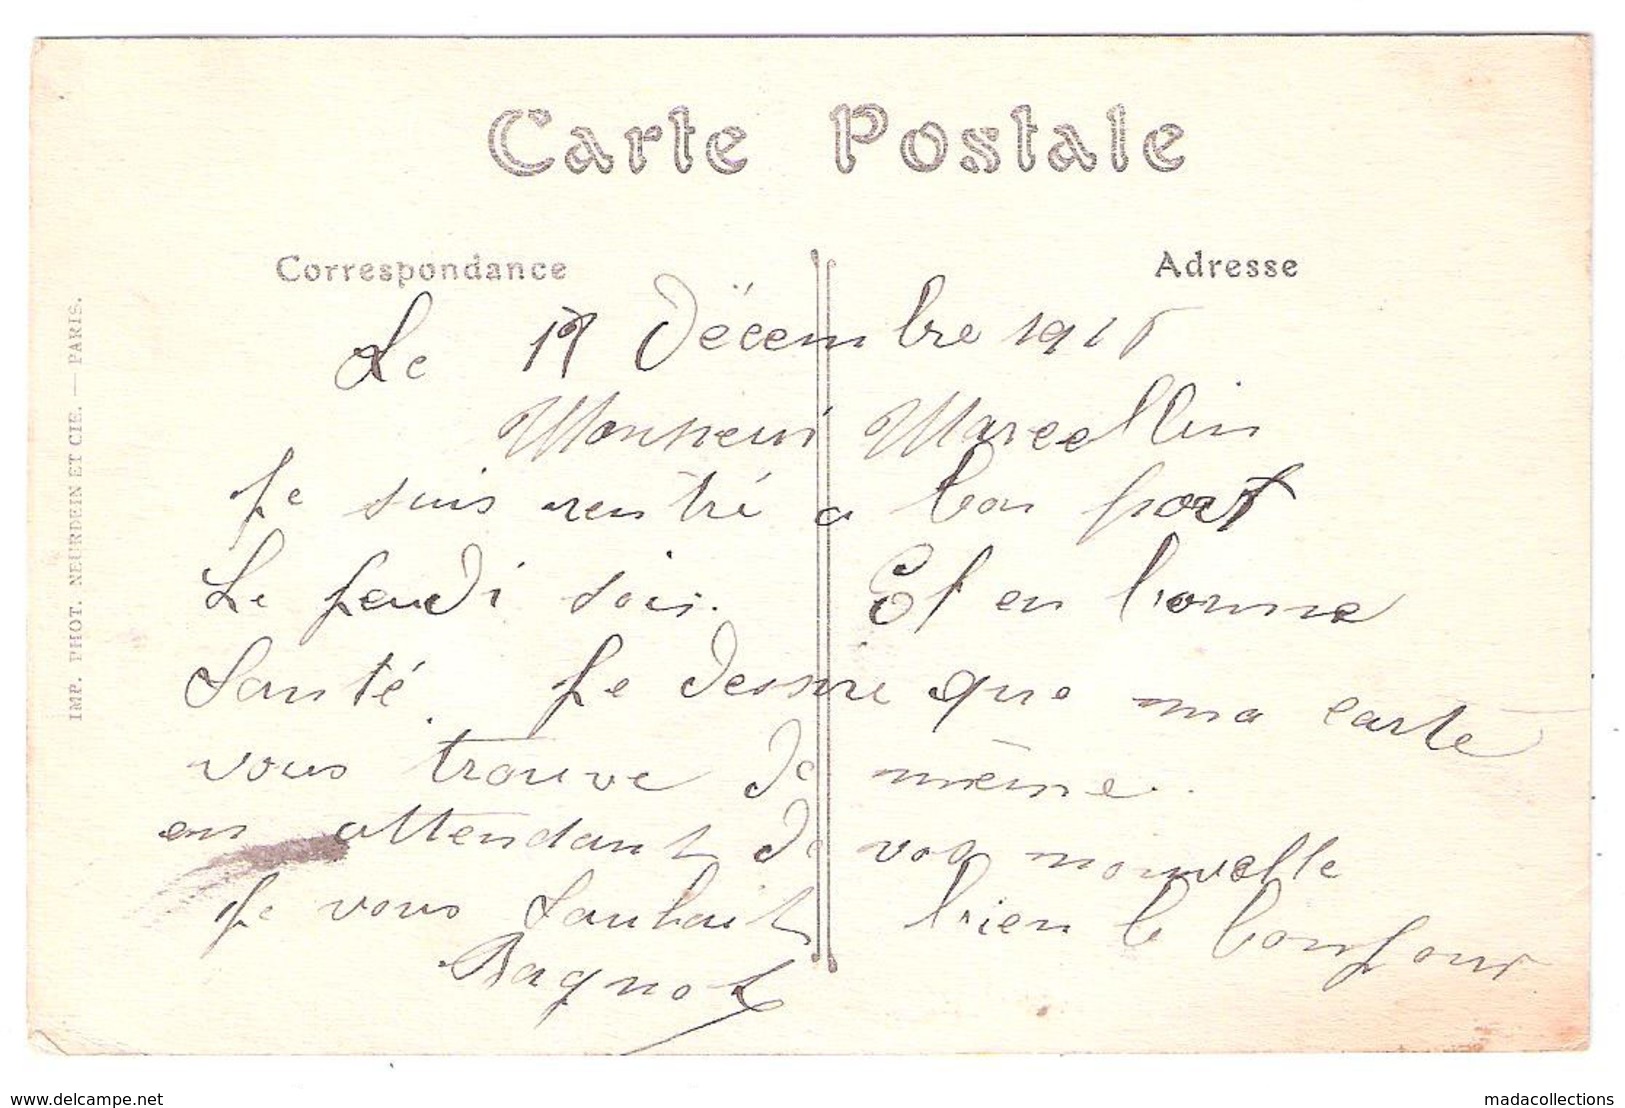 Carte Postale
Correspondance Adresse
Le Décembre
Monsieur Marcellin
Je suis rentré a bon port
Le Jeudi soir. Et en bonne
Santé. Je dessire que ma carte
vous trouve de même.
en attendant de vos nouvelle
Je vous Souhait bien le bonjour
Bagnot
IMP. PHOT. NEURDEIN ET CIE. — PARIS.
www.delcampe.net
madacollections